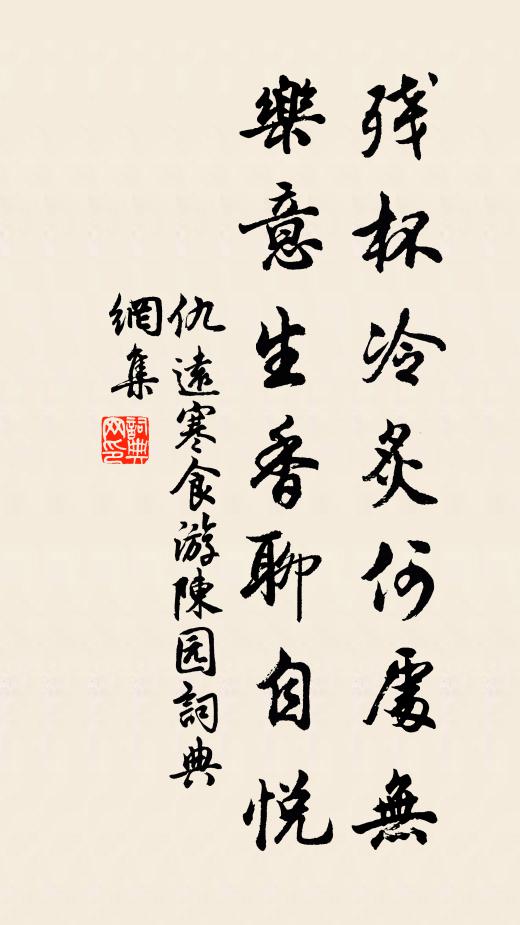 残杯冷炙何處無
樂意生香聊自悦
仇遠寒食游陳园詞典
網集
詞典
网印